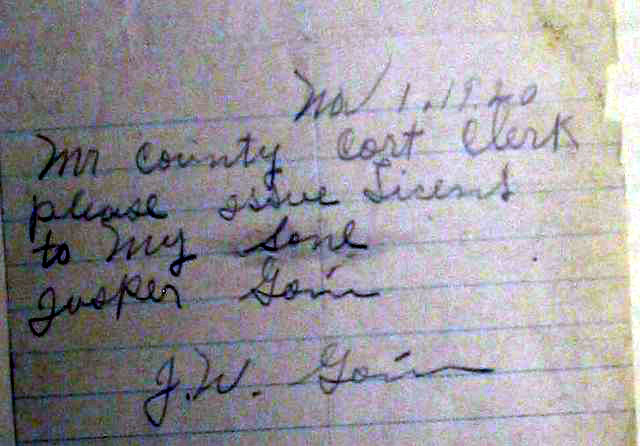 Nov 1, 1940
Mr County Cort Clerk
please issue Licens
to My Sone
Jasper Goin
J. W. Goin